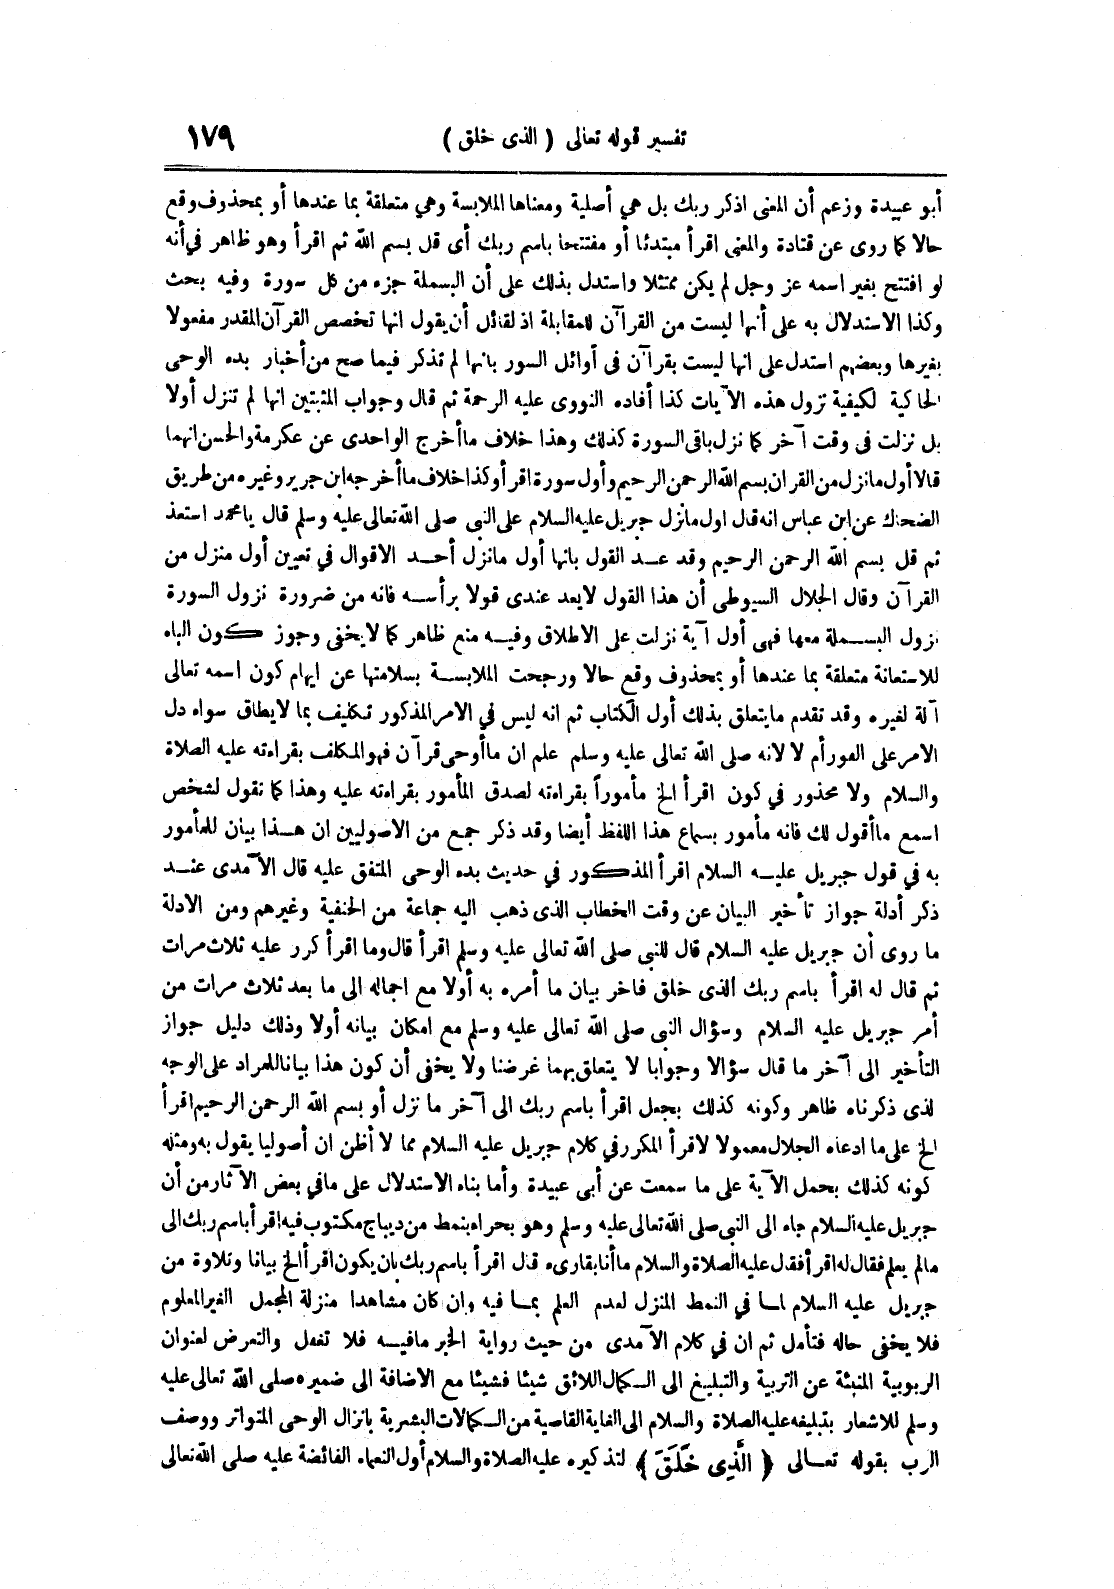 تفسير قوله تعالى ( الذى خلق ) ١٧٩
أبو عبيدة وزعم أن المعنى اذكر ربك بل هي أصلية ومعناها الملابسة وهي متعلقة بما عندها أو بمحذوف وقع
حالا كما روى عن قتادة والمعنى اقرأ مبتدئا أو مفتتحا باسم ربك أى قل بسم الله ثم اقرأ وهو ظاهر في أنه
لو افتتح بغير اسمه عز وجل لم يكن ممتثلا واستدل بذلك على أن البسملة جزء من كل سورة وفيه بحث
وكذا الاستدلال به على أنها ليست من القرآن للمقابلة اذ لقائل أن يقول انها تخصص القرآن المقدر مفعولا
بغيرها وبعضهم استدل على انها ليست بقرآن فى أوائل السور بانها لم تذكر فيما صح من أخبار بدء الوحى
الحاكية لكيفية نزول هذه الآيات كذا أفاده النووى عليه الرحمة ثم قال وجواب المثبتين انها لم تنزل أولا
بل نزلت فى وقت آخر كما نزل باقى السورة كذلك وهذا خلاف ما أخرج الواحدى عن عكرمة والحسن انهما
قالا أول ما نزل من القران بسم الله الرحمن الرحيم وأول سورة اقرأ وكذا خلاف ما أخرجه ابن جرير وغيره من طريق
الضحاك عن ابن عباس انه قال اول ما نزل جبريل عليه السلام على النبي صلى الله تعالى عليه وسلم قال يا محمد استعذ
ثم قل بسم الله الرحمن الرحيم وقد عد القول بانها أول مانزل أحد الاقوال في تعيين أول منزل من
القرآن وقال الجلال السيوطى أن هذا القول لايعد عندى قولا برأسه فانه من ضرورة نزول السورة
نزول البسملة معها فهى أول آية نزلت على الاطلاق وفيه منع ظاهر كما لا يخفى وجوز كون الباء
للاستعانة متعلقة بما عندها أو بمحذوف وقع حالا ورجحت الملابسة بسلامتها عن ايهام كون اسمه تعالى
آلة لغيره وقد تقدم مايتعلق بذلك أول الكتاب ثم انه ليس في الامر المذكور تكليف بما لايطاق سواء دل
الامر على الفور أم لا لانه صلى الله تعالى عليه وسلم علم ان ما أوحى قرآن فهو المكلف بقراءته عليه الصلاة
والسلام ولا محذور في كون اقرأ الخ مأموراً بقراءته لصدق المأمور بقراءته عليه وهذا كما تقول لشخص
اسمع ما أقول لك فانه مأمور بسماع هذا اللفظ أيضا وقد ذكر جمع من الاصوليين ان هذا بيان للمأمور
به في قول جبريل عليه السلام اقرأ المذكور في حديث بدء الوحى المتفق عليه قال الآمدى عند
ذكر أدلة جواز تأخير البيان عن وقت الخطاب الذى ذهب اليه جماعة من الحنفية وغيرهم ومن الادلة
ما روى أن جبريل عليه السلام قال للنبي صلى الله تعالى عليه وسلم اقرأ قال وما اقرأ كرر عليه ثلاث مرات
ثم قال له اقرأ باسم ربك الذى خلق فاخر بيان ما أمره به أولا مع اجماله الى ما بعد ثلاث مرات من
أمر جبريل عليه السلام وسؤال النبي صلى الله تعالى عليه وسلم مع امكان بيانه أولا وذلك دليل جواز
التأخير الى آخر ما قال سؤالا وجوابا لا يتعلق بهما غرضنا ولا يخفى أن كون هذا بيانا للمراد على الوجه
لذى ذكرناه ظاهر وكونه كذلك بجعل اقرأ باسم ربك الى آخر ما نزل أو بسم الله الرحمن الرحيم اقرأ
الخ على ما ادعاه الجلال معمولا لاقرأ المكرر في كلام جبريل عليه السلام مما لا أظن ان أصوليا يقول به ومثله
كونه كذلك بحمل الآية على ما سمعت عن أبى عبيدة وأما بناء الاستدلال على مافي بعض الآثار من أن
جبريل عليه السلام جاء الى النبي صلى الله تعالى عليه وسلم وهو بحراء بنمط من ديباج مكتوب فيه اقرأ باسم ربك الى
مالم يعلم فقال له اقرأ فقال عليه الصلاة والسلام ما أنا بقارىء قال اقرأ باسم ربك بان يكون اقرأ الخ بيانا وتلاوة من
جبريل عليه السلام لما في النمط المنزل لعدم العلم بما فيه وان كان مشاهدا منزلة المجمل الغير المعلوم
فلا يخفى حاله فتأمل ثم ان في كلام الآمدى من حيث رواية الخبر مافيه فلا تغفل والتعرض لعنوان
الربوبية المنبئة عن التربية والتبليغ الى الكمال اللائق شيئا فشيئا مع الاضافة الى ضميره صلى الله تعالى عليه
وسلم للاشعار بتبليغه عليه الصلاة والسلام الى الغاية القاصية من الكمالات البشرية بانزال الوحى المتواتر ووصف
الرب بقوله تعالى ﴿ الَّذِى خَلَقَ ﴾ لتذكيره عليه الصلاة والسلام أول النعماء الفائضة عليه صلى الله تعالى